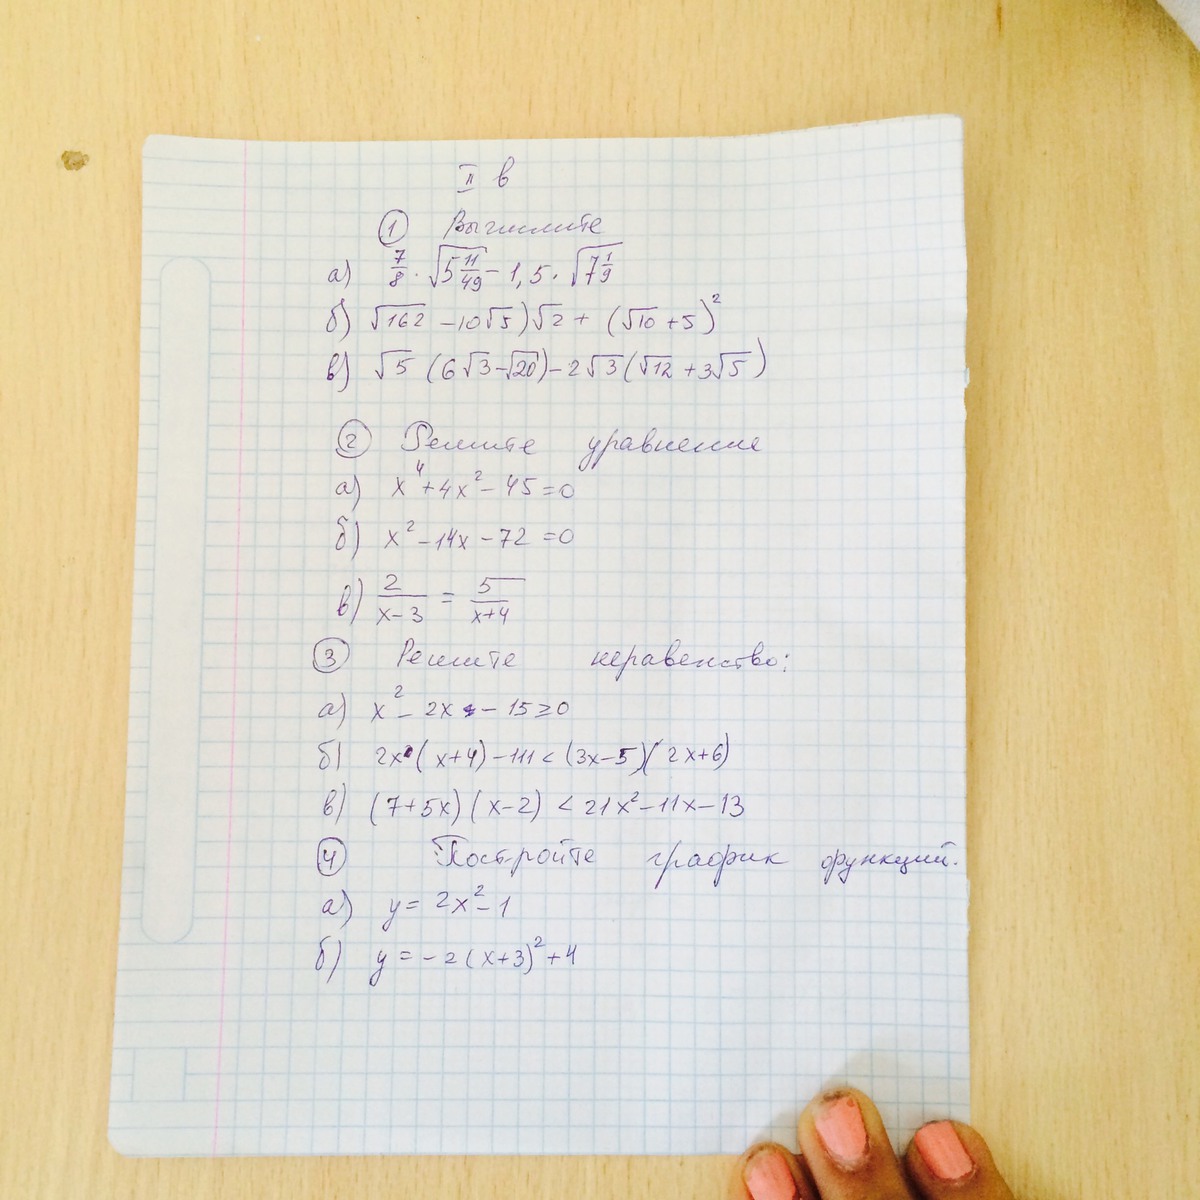 II в
1 Вычислите
а) 7/8 · √(5 11/49) - 1,5 · √(7 1/9)
б) √162 - 10√5)√2 + (√10 + 5)²
в) √5 (6√3 - √20) - 2√3(√12 + 3√5)
2 Решите уравнение
а) x⁴ + 4x² - 45 = 0
б) x² - 14x - 72 = 0
в) 2/(x-3) = 5/(x+4)
3 Решите неравенство:
а) x² - 2x - 15 ≥ 0
б) 2x(x+4) - 111 < (3x-5)(2x+6)
в) (7+5x)(x-2) < 21x² - 11x - 13
4 Постройте график функций.
а) y = 2x² - 1
б) y = -2(x+3)² + 4